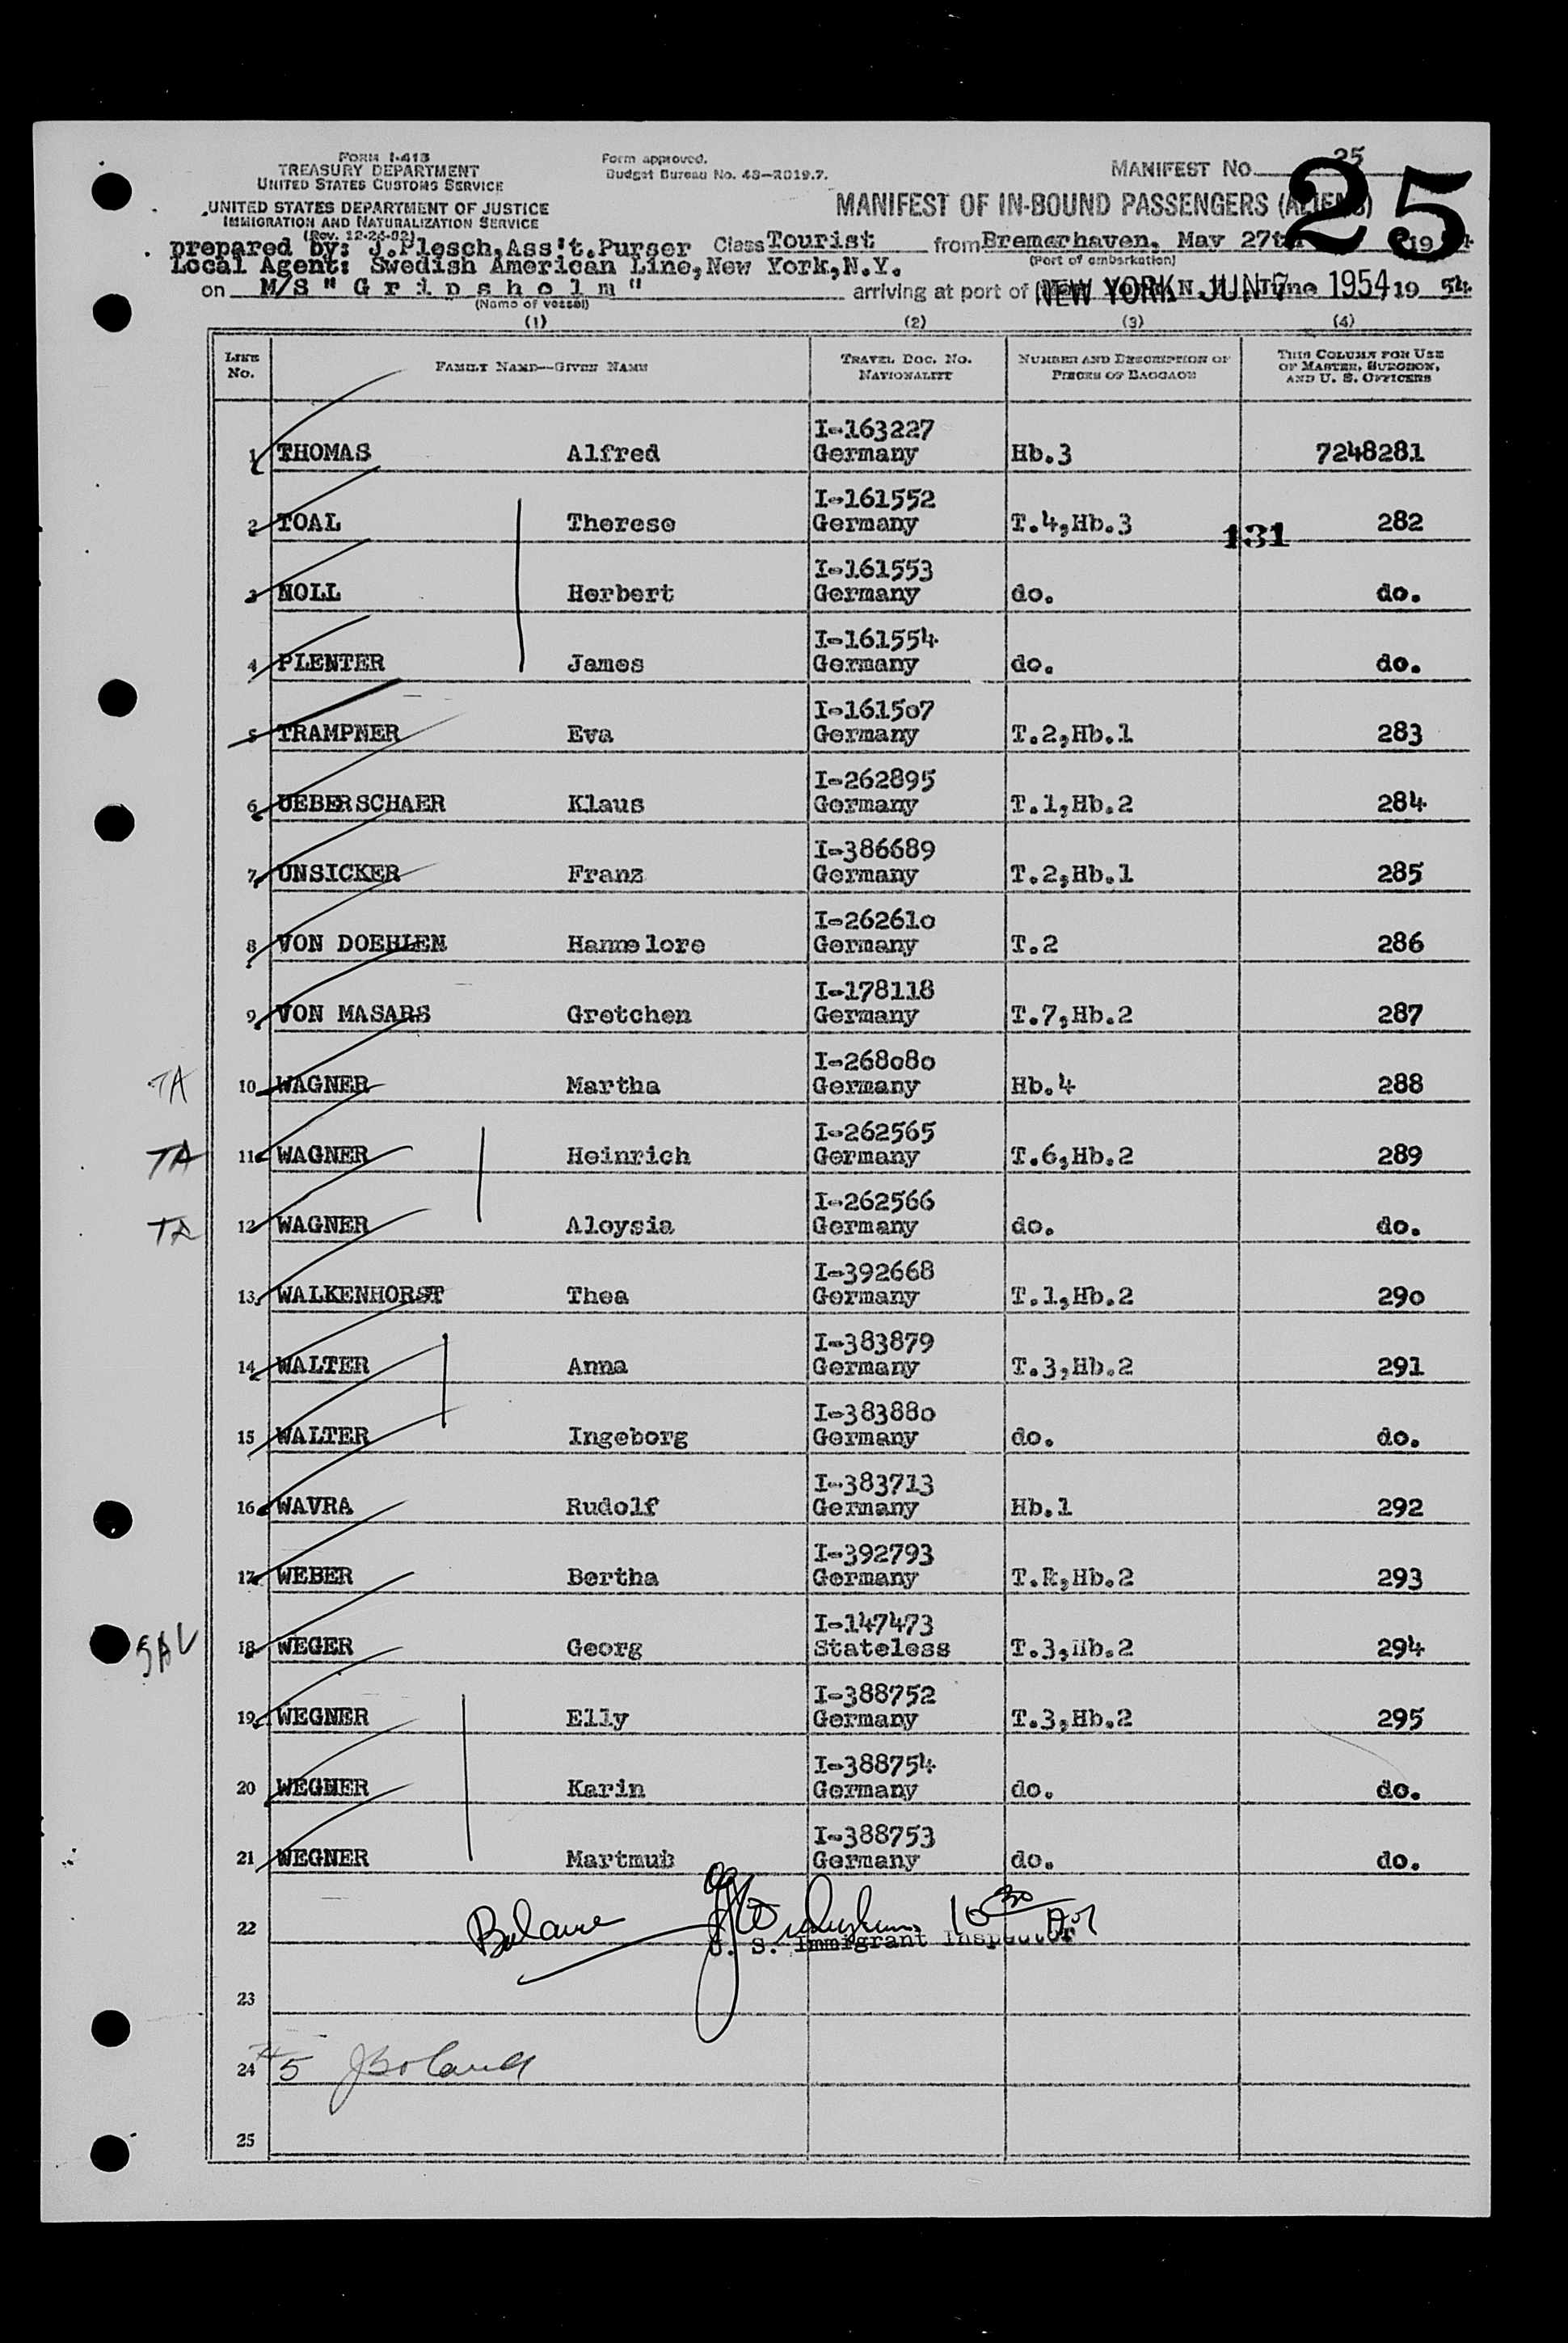 FORM I-418
TREASURY DEPARTMENT
UNITED STATES CUSTOMS SERVICE
UNITED STATES DEPARTMENT OF JUSTICE
IMMIGRATION AND NATURALIZATION SERVICE
(Rev. 12-24-52)
Form approved.
Budget Bureau No. 43-R019.7.
MANIFEST NO. 25
25
MANIFEST OF IN-BOUND PASSENGERS (ALIENS)
prepared by: J.Plesch,Ass't.Purser Class Tourist from Bremerhaven, May 27th 19
Local Agent: Swedish American Line,New York,N.Y. (Port of embarkation)
on M/S " G r i p s h o l m " arriving at port of NEW YORK JUN 7 1954 June 19 54
(Name of vessel)
(1) (2) (3) (4)
LINE No. FAMILY NAME—GIVEN NAME TRAVEL DOC. NO. NATIONALITY NUMBER AND DESCRIPTION OF PIECES OF BAGGAGE THIS COLUMN FOR USE OF MASTER, SURGEON, AND U. S. OFFICERS
I-163227
1 THOMAS Alfred Germany Hb.3 7248281
I-161552
2 TOAL Therese Germany T.4,Hb.3 131 282
I-161553
3 NOLL Herbert Germany do. do.
I-161554
4 PLENTER James Germany do. do.
I-161507
5 TRAMPNER Eva Germany T.2,Hb.1 283
I-262895
6 UEBERSCHAER Klaus Germany T.1,Hb.2 284
I-386689
7 UNSICKER Franz Germany T.2,Hb.1 285
I-262610
8 VON DOEHLEN Hannelore Germany T.2 286
I-178118
9 VON MASARS Gretchen Germany T.7,Hb.2 287
I-268080
TA 10 WAGNER Martha Germany Hb.4 288
I-262565
TA 11 WAGNER Heinrich Germany T.6,Hb.2 289
I-262566
TA 12 WAGNER Aloysia Germany do. do.
I-392668
13 WALKENHORST Thea Germany T.1,Hb.2 290
I-383879
14 WALTER Anna Germany T.3,Hb.2 291
I-383880
15 WALTER Ingeborg Germany do. do.
I-383713
16 WAVRA Rudolf Germany Hb.1 292
I-392793
17 WEBER Bertha Germany Hb.2 293
I-147473
SAV 18 WEGER Georg Stateless T.3,Hb.2 294
I-388752
19 WEGNER Elly Germany T.3,Hb.2 295
I-388754
20 WEGNER Karin Germany do. do.
I-388753
21 WEGNER Germany do. do.
22 U. S. Immigrant Inspector
23
24 #5
25